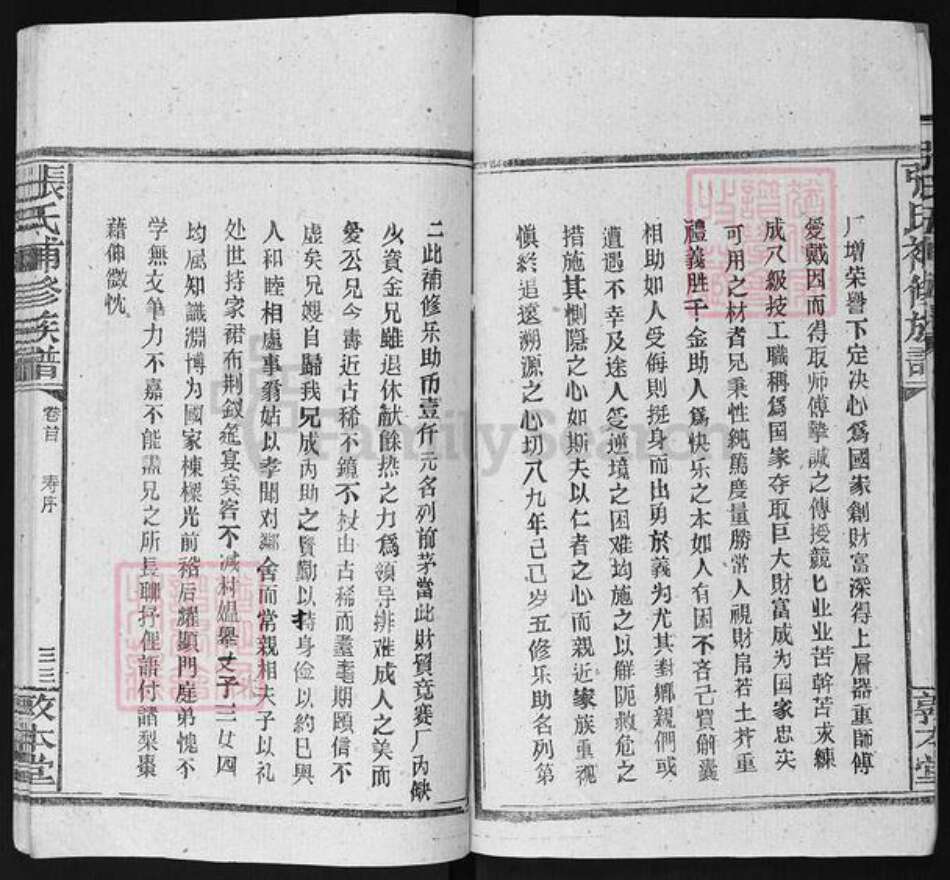 張氏補修族譜
厂增荣譽下定决心爲國家創財富深得上層器重師傅
愛戴因而得取师傅摯誠之傳授競匕业业苦幹苦求練
成八級技工職稱爲国家夺取巨大財富成为囯家忠实
可用之材者兄秉性純篤度量勝常人視財帛若土芥重
禮義胜千金助人爲快乐之本如人有困不吝己貲解囊
相助如人受侮則挺身而出勇於義为尤其對鄉親們或
遭遇不幸及途人受逆境之困难均施之以解阨救危之
措施其惻隠之心如斯夫以仁者之心而親近家族重視
慎終追遠溯源之心切八九年己巳岁五修乐助名列第
敦本堂
二此補修乐助币壹仟元名列前茅當此財貿竞赛厂內缺
少資金兄雖退休献餘热之力爲領导排难成人之美而
愛公兄今壽近古稀不鏡不杖由古稀而耋耄期頤信不
虚矣兄嫂自歸我兄成內助之賢勤以持身俭以約己與
人和睦相處事翁姑以孝聞对鄰舍而常親相夫子以礼
处世持家裙布荆釵筵宴宾客不减村媪舉丈子三女四
均属知識渊博为國家棟樑光前裕后耀顯門庭弟愧不
学無文筆力不嘉不能肅兄之所長聊抒俚語付諸梨棗
藉伸微忱
張氏補修族譜
卷首
寿序
三三
敦本堂
FamilySearch